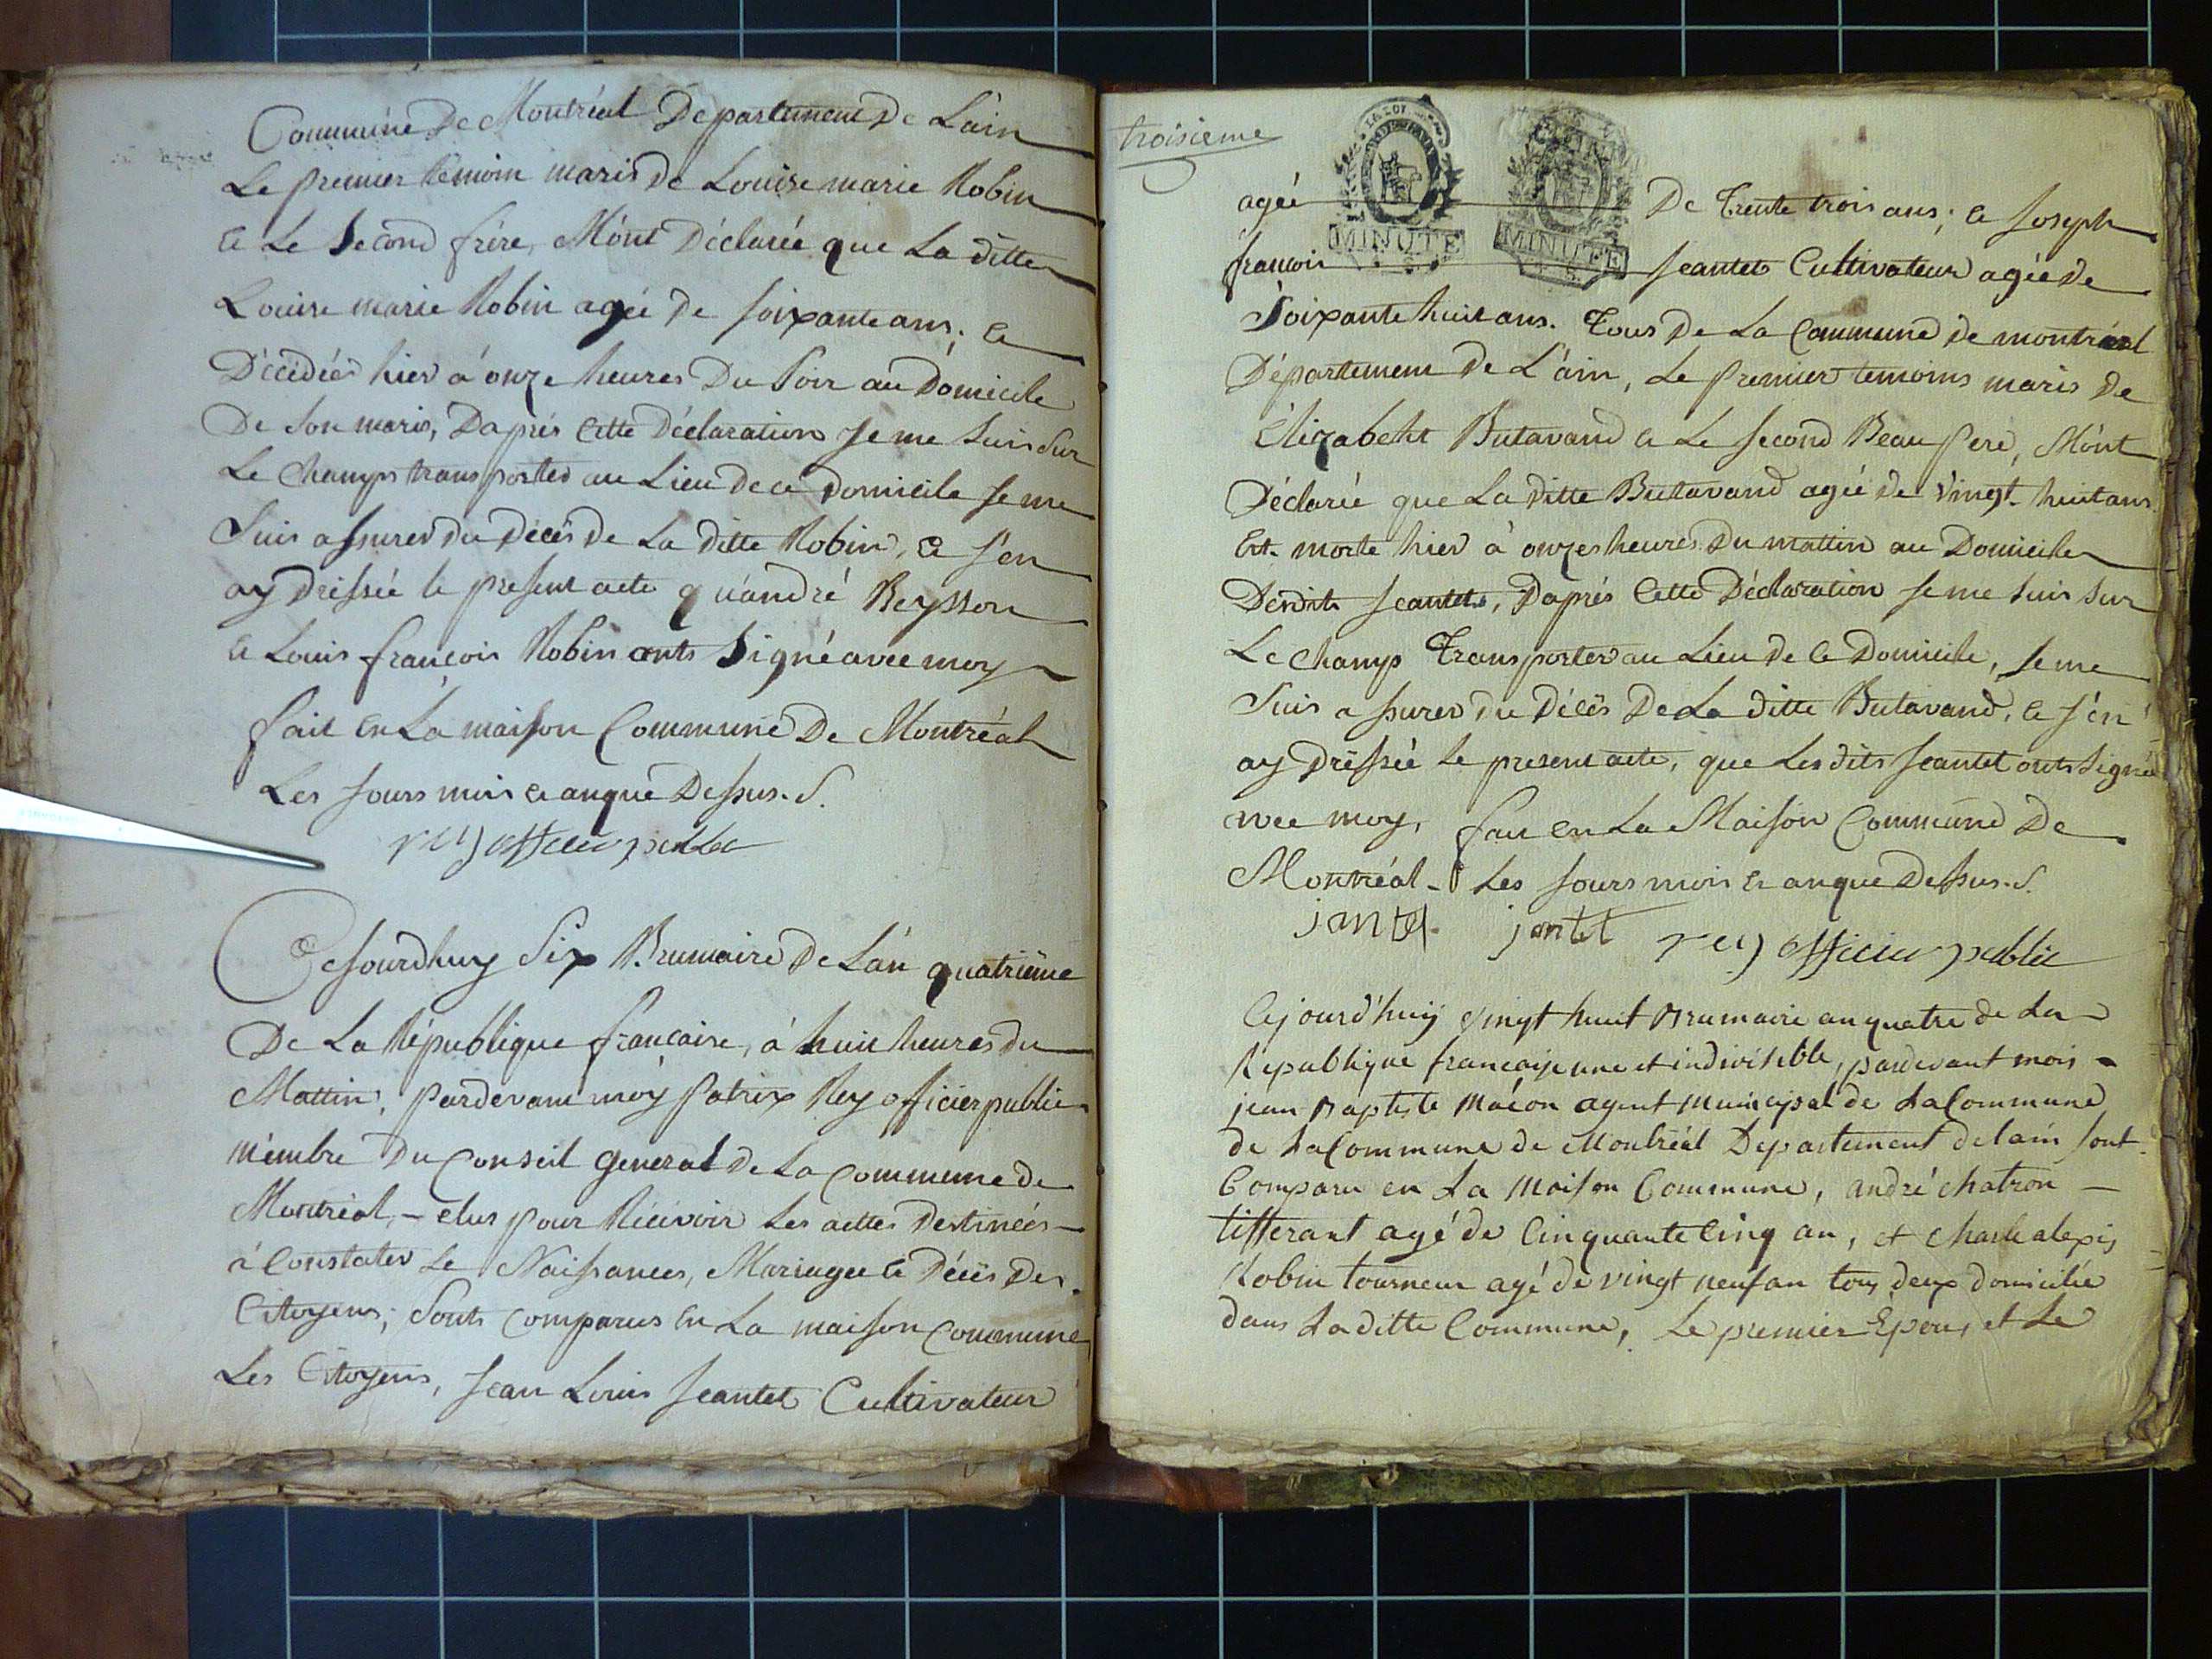 Commune De Montréal Departement De L'ain
Le premier temoin maris de Louise marie Robin
Et Le second frère, M'ont Déclarée que La ditte
Louise marie Robin agée de soixante ans; Est
Décédée hier à onze heures Du Soir au Domicile
De Son maris, D'après Cette Déclaration Je me suis sur
Le Champs transporter au Lieu de ce Domicile Je me
Suis assurer du Décès De La ditte Robin, Et J'en
ay Dressée le present acte qu'andré Reysson
Et Louis françois Robin onts Signé avec moy
fait En La maison Commune De Montréal
Les Jours mois Et anque Dessus. S.
rey officier public
Cejourdhuy Six Brumaire De L'an quatrième
De La République française, à huit heures du
Mattin, pardevant moy Patrix Rey officier public
membre Du Conseil General de La Commune de
Montréal, - elus pour Récevoir Les actes Destinées
à Constater Le Naissances, Mariages Et Décès Des
Citoyens; Sonts Comparus En La maison Commune
Les Citoyens, Jean Louis Jeantet Cultivateur
troisieme
agée De Trente trois ans; Et Joseph
MINUTE MINUTE
francois Jeantet Cultivateur agée De
Soixante huit ans. Tous De La Commune de montréal
Département De L'ain, Le premier temoins maris De
Elizabeht Butavand Et Le second Beau Pere, M'ont
Déclarée que La ditte Butavand agée de Vingt-huit ans
Est morte hier à onzes heures Du mattin au Domicile
Desdits Jeantet, D'après Cette Déclaration Je me suis sur
Le Champ Transporter au Lieu de Ce Domicile, Je me
Suis assurer du Décès De La ditte Butavand, Et J'en
ay Dressée le present acte, que Lesdits Jeantet onts signée
avec moy, fait En La Maison Commune De
Montréal - Les Jours mois Et anque Dessus. S.
jantet jantet rey officier public
Cejourd'huij vingt huit Brumaire an quatre de La
Republique francaise une et indivisible, pardevant mois
jean Baptiste Macon agent Municipal de La Commune
de La Commune de Montréal Departement de lain sont
Comparu en La Maison Commune, andré chatron
tisserant agé de Cinquante Cinq an, et Charle alexis
Robin tourneur agé de vingt neuf an tous deux domicilie
dans La ditte Commune, Le premier Epoux et Le